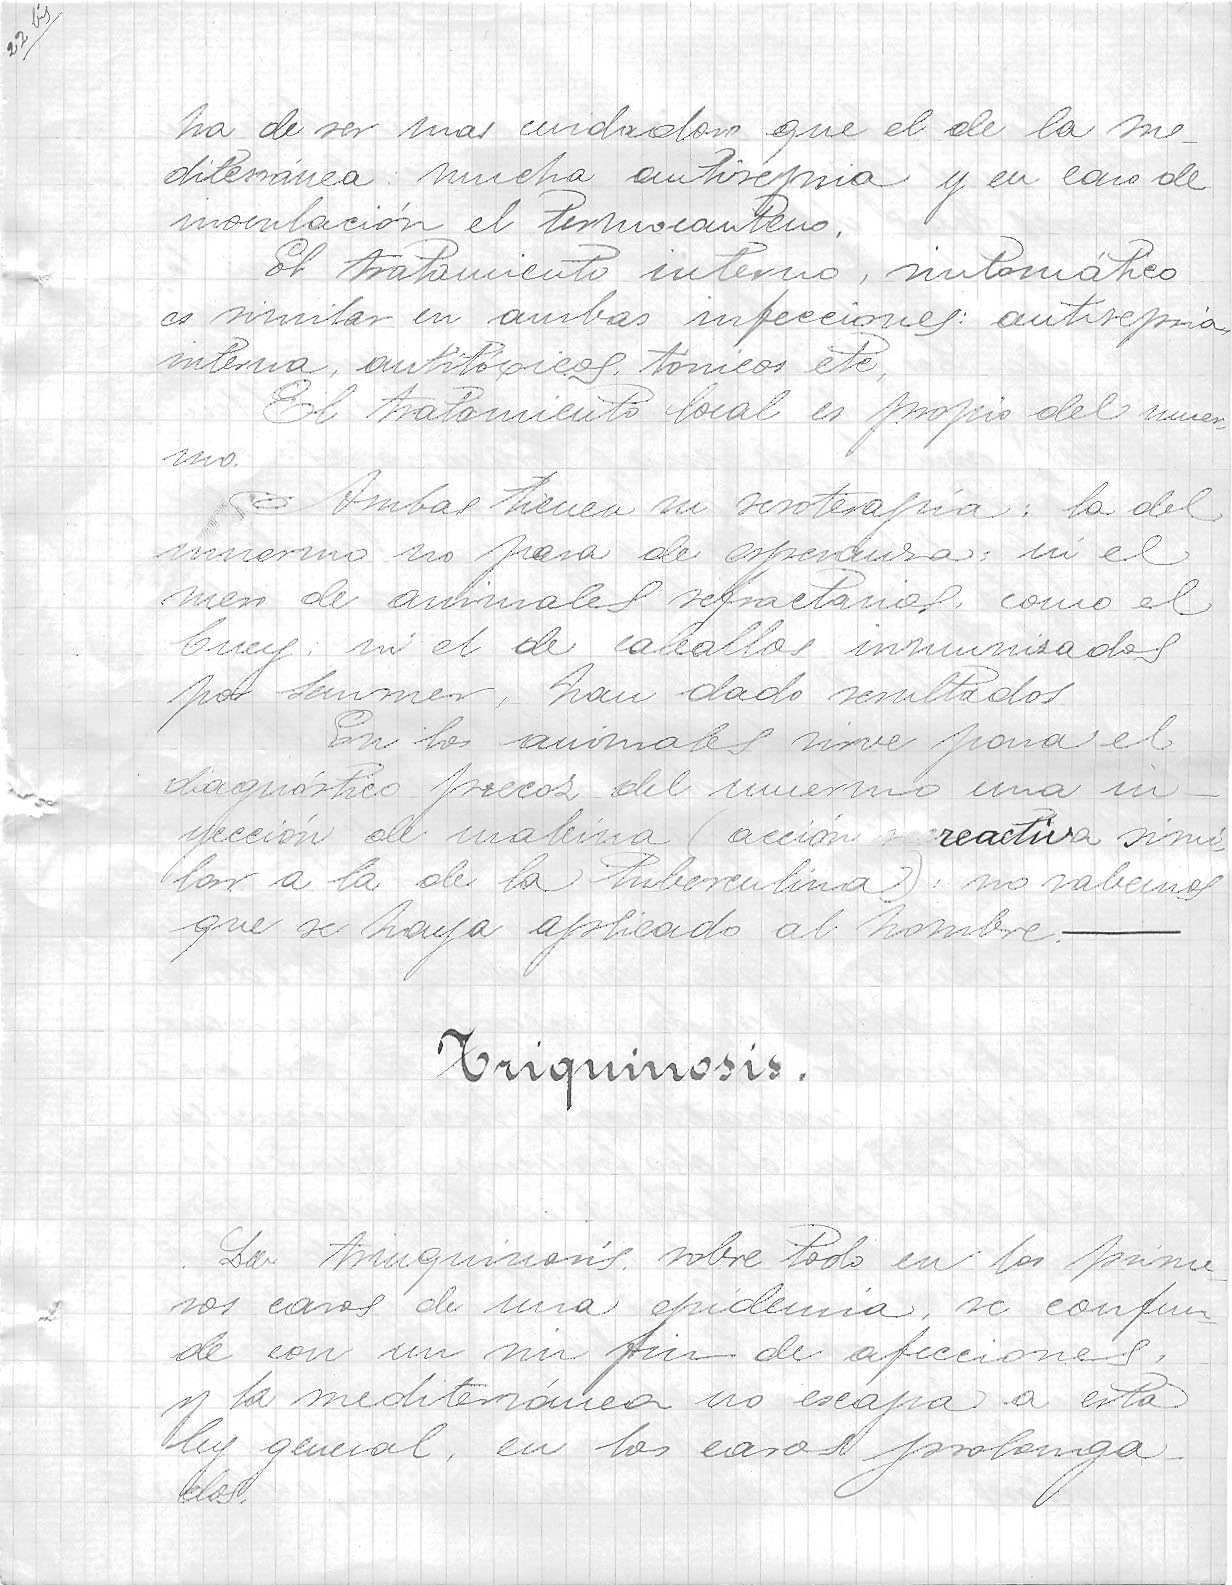 22 bis
ha de ser mas cuidadoso que el de la me-
diterránea: mucha antisepsia y en caso de
inoculación el termocauterio.
El tratamiento interno, sintomático
es similar en ambas infecciones: antisepsia
interna, antitóxicos, tónicos etc,
El tratamiento local es propio del muer-
mo.
Ambas tienen su seroterapia: la del
muermo no pasa de esperanza: ni el
suero de animales refractarios, como el
buey; ni el de caballos inmunizados
por Semmer, han dado resultados
En los animales sirve para el
diagnóstico precoz del muermo una in-
yección de maleina (acción reactiva simi-
lar a la de la tuberculina): no sabemos
que se haya aplicado al hombre.
Triquinosis.
La triquinosis, sobre todo en los prime-
ros casos de una epidemia, se confun-
de con un sin fin de afecciones,
y la mediterránea no escapa a esta
ley general, en los casos prolonga-
dos.